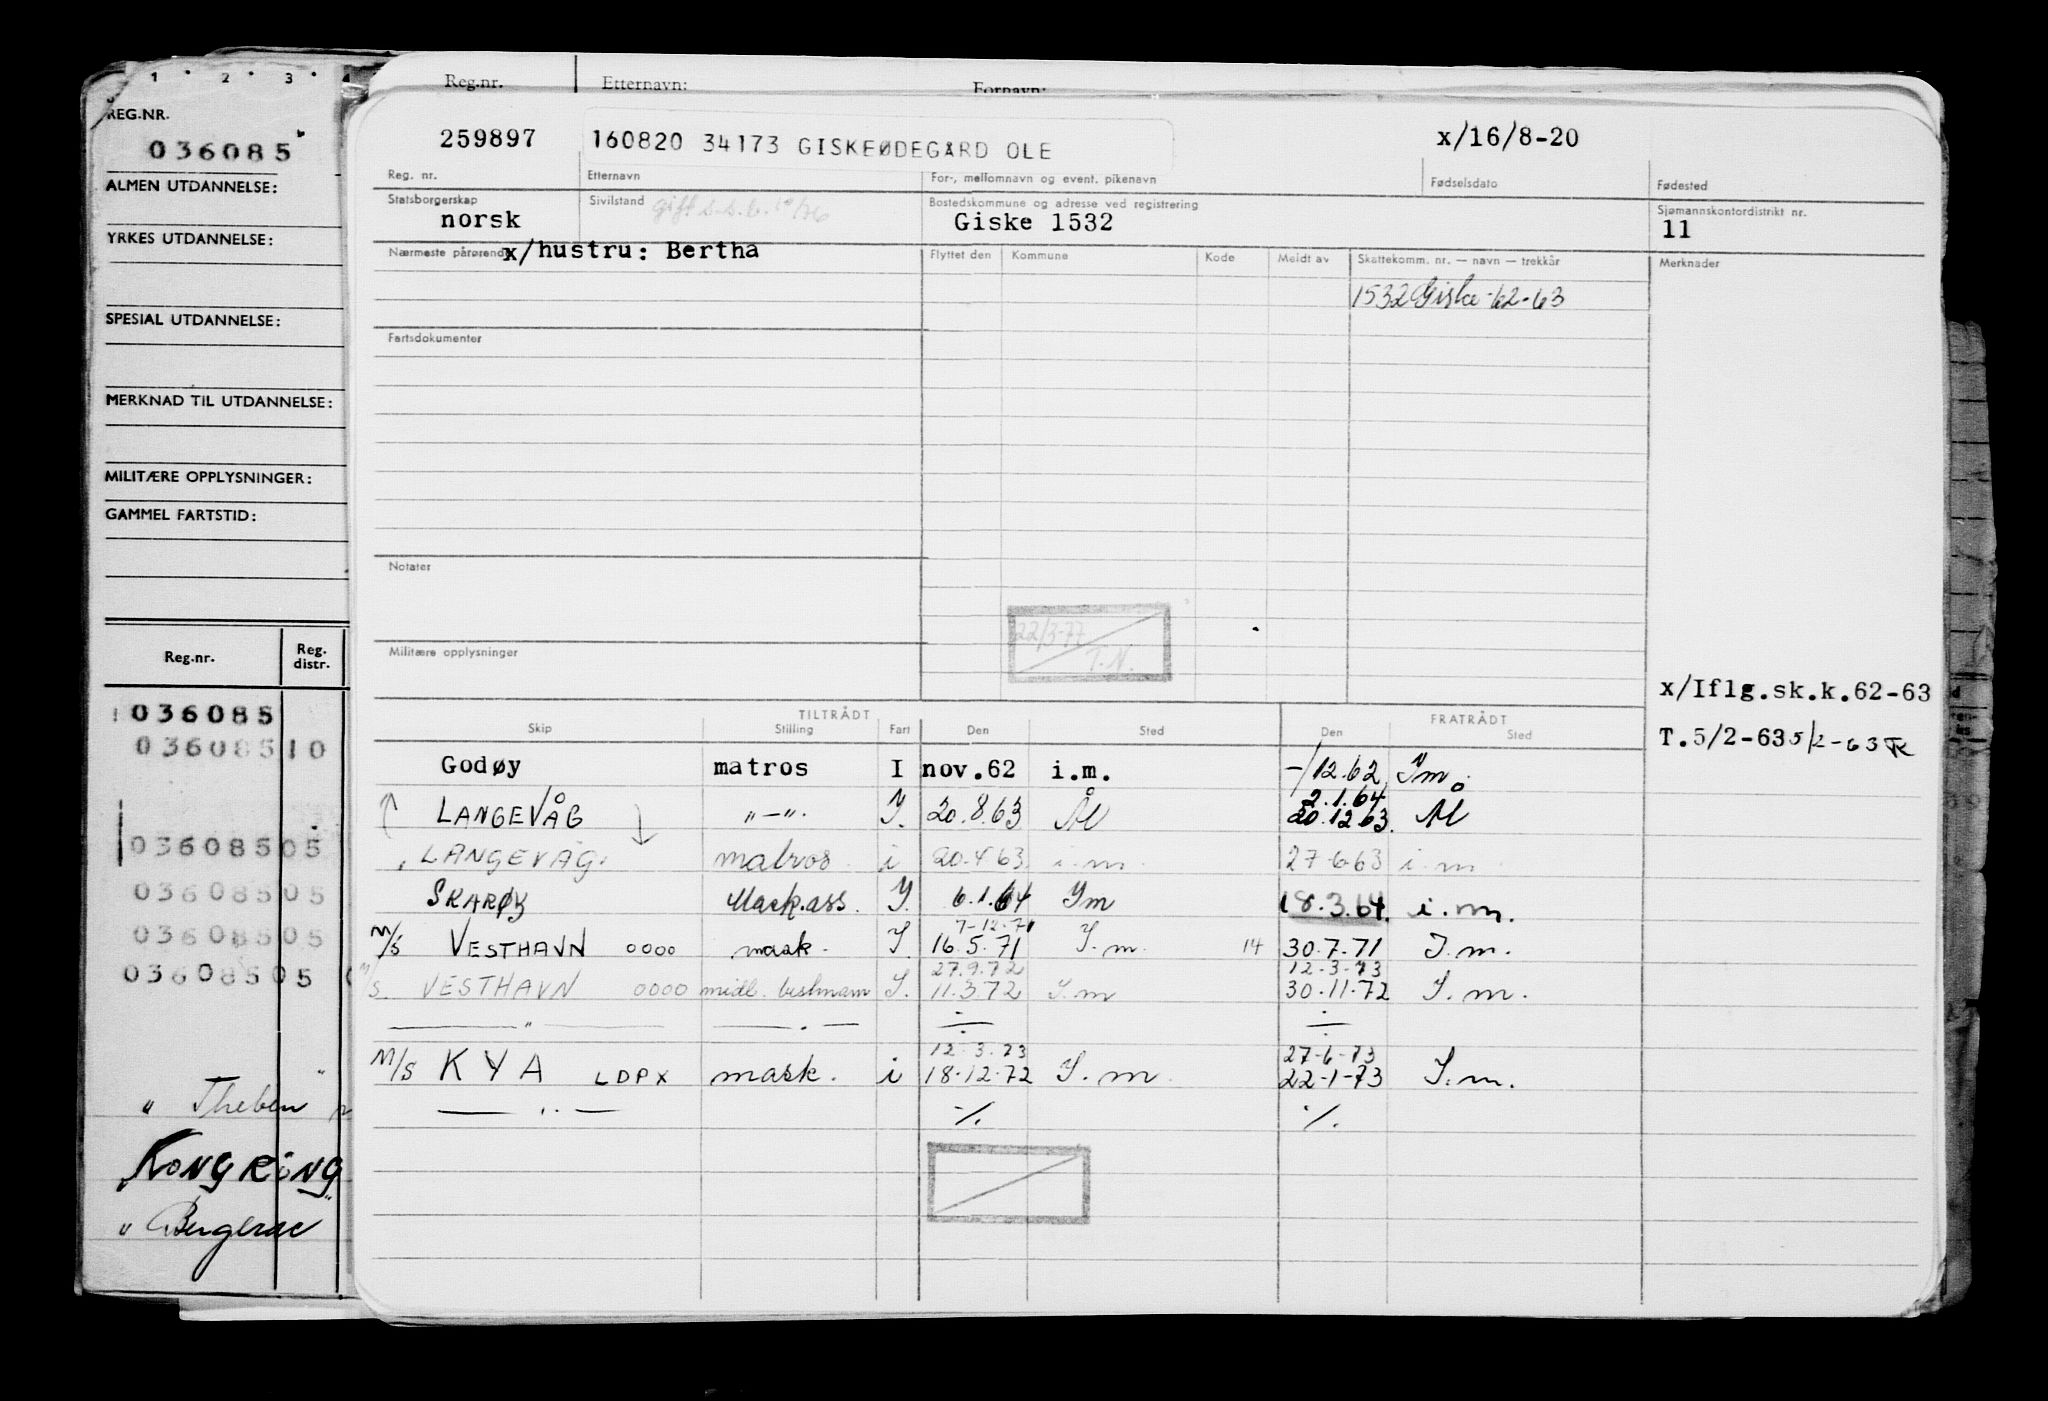 1 2 3
REG.NR.
036085
ALMEN UTDANNELSE:
YRKES UTDANNELSE:
SPESIAL UTDANNELSE:
MERKNAD TIL UTDANNELSE:
MILITÆRE OPPLYSNINGER:
GAMMEL FARTSTID:
Reg.nr. Reg. distr.
036085
036085 10
036085 05
036085 05
036085 05
036085 05
" Theben
"KONGRING"
" Bergerac
Reg.nr. Etternavn: Fornavn:
259897 160820 34173 GISKEØDEGÅRD OLE x/16/8-20
Reg. nr. Etternavn For-, mellomnavn og event. pikenavn Fødselsdato Fødested
Statsborgerskap Sivilstand gift Bostedskommune og adresse ved registrering Sjømannskontordistrikt nr.
norsk Giske 1532 11
Nærmeste pårørende x/hustru: Bertha Flyttet den Kommune Kode Meldt av Skattekomm. nr. — navn — trekkår Merknader
1532 Giske -62-63
Fartsdokumenter
Notater
22/3-77
T.N.
Militære opplysninger
x/Iflg.sk.k.62-63
T.5/2-63 5/2-63
TILTRÅDT FRATRÅDT
Skip Stilling Fart Den Sted Den Sted
Godøy matros I nov.62 i.m. -/12.62 Im
2.1.64
LANGEVÅG "—". I. 20.8.63 Ål 20.12.63. Ål
LANGEVÅG. matros. i 20.4.63. i.m. 27-6-63 i.m.
SKARØY Mask.ass. I. 6.1.64 Im 18.3.64. i.m.
7-12-71
M/S VESTHAVN 0000 mask. I. 16.5.71 I.m. 14 30.7.71 I.m.
27.9.72 12-3-73
M/S VESTHAVN 0000 midl. bestmann I. 11.3.72 I.m 30.11.72 I.m.
— " — — . — ÷ ÷
12.3.73 27-6-73
M/S KYA LDPX mask. i 18-12-72 I.m. 22-1-73 I.m.
— " — ·/. ·/.